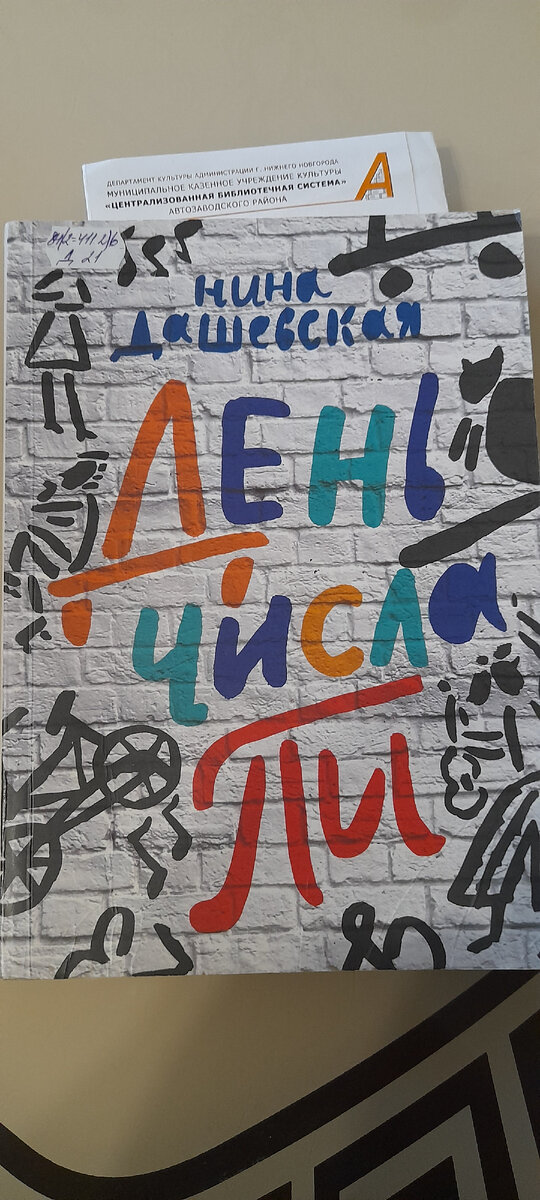 ДЕПАРТАМЕНТ КУЛЬТУРЫ АДМИНИСТРАЦИИ Г. НИЖНЕГО НОВГОРОДА
МУНИЦИПАЛЬНОЕ КАЗЕННОЕ УЧРЕЖДЕНИЕ КУЛЬТУРЫ
«ЦЕНТРАЛИЗОВАННАЯ БИБЛИОТЕЧНАЯ СИСТЕМА»
АВТОЗАВОДСКОГО РАЙОНА
А
Д 21
нина
Дашевская
ДЕНЬ
числа
ПИ